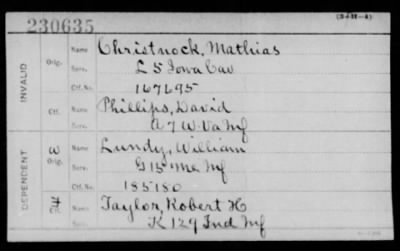 (3-111-A)
230635
INVALID
Orig.
Name Christnock, Mathias
Serv. L 5 Iowa Cav
167695
Ctf.
Name Phillips, David
A 7 W. Va Inf
DEPENDENT
W
Orig.
Name Lundy, William
Serv. G 15 Me Inf
Ctf. No. 185180
Name Taylor, Robert H
Serv. K 129 Ind Inf